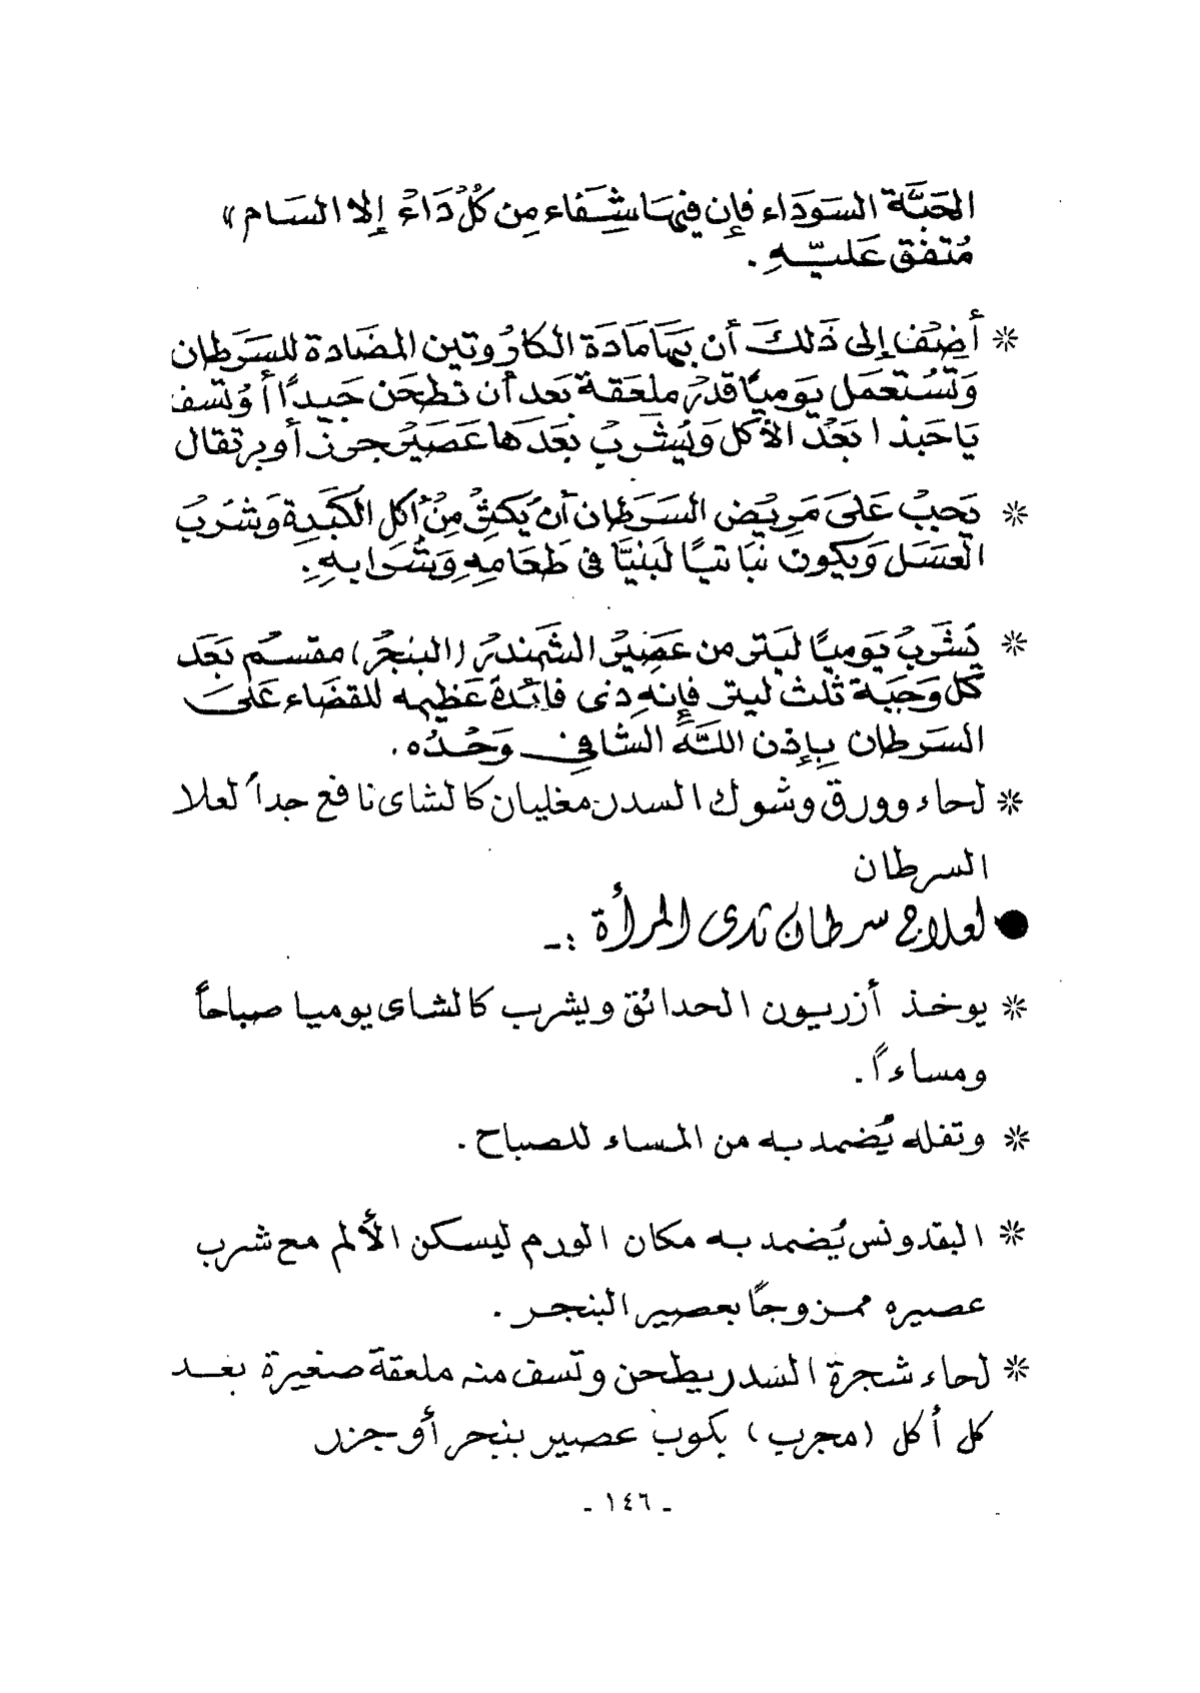 الحَبَّة السَوَدَاء فإن فيهَا شِفَاء مِن كُلُ دَاءْ إلا السَام»
مُتفق عَليّهِ .
* أَضِفْ إلى ذَلكَ أن بهَا مَادَة الكارُوتين المضَادة للسَرطان
وَتسُتعمَل يَوميًا قدرُ ملعَقة بَعد أن تطحَن جَيدًا أوُتسف
يَاحَبذا بَعْدَ الأكل وَيُشرَبُ بعَدَها عَصَيرُ جزر أو برتقال
* يَجبُ عَلىَ مَريْض السَرَطان أنْ يُكثِرُ مِنْ أكل الكَبَدِة وَشَربَ
العَسَل وَيكون نبَاتيًا لبَنيًا فى طعَامِهِ وَشَرَابهِ.
* يَشَربُ يَوميًا ليَتر من عَصِيرُ الشمندرُ (البنجرُ) مقسمُ بَعَد
كل وَجبَة ثلث ليتر فإنه ِذى فائدة عَظيمه للقضَاء عَلىَ
السَرطان بِإذن اللَّهَ الشافِى وَحْدُه.
* لحاء وورق وشوك السدر مغليان كالشاى نافع جداً لعلا
السرطان
● لعلاج سرطان ثدى المرأة :ـ
* يوخذ أزريون الحدائق ويشرب كالشاى يوميا صباحاً
ومساءاً .
* وتفله يُضمد به من المساء للصباح .
* البقدونس يُضمد به مكان الورم ليسكن الألم مع شرب
عصيره ممزوجًا بعصير البنجر .
* لحاء شجرة السدر يطحن وتسف منه ملعقة صغيرة بعد
كل أكل (مجرب) بكوب عصير بنجر أو جزر
- ١٤٦ -